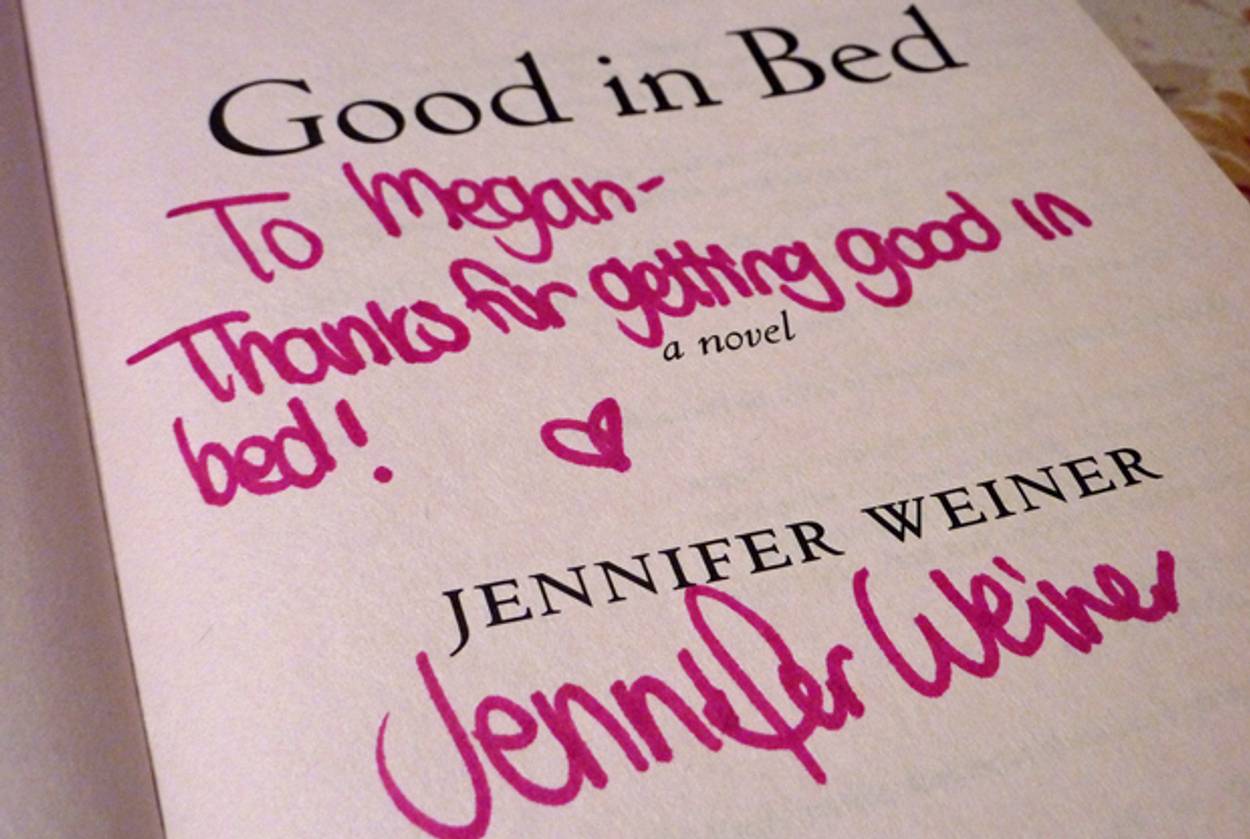 Good in Bed
To Megan-
Thanks for getting good in
a novel
bed!
JENNIFER WEINER
Jennifer Weiner